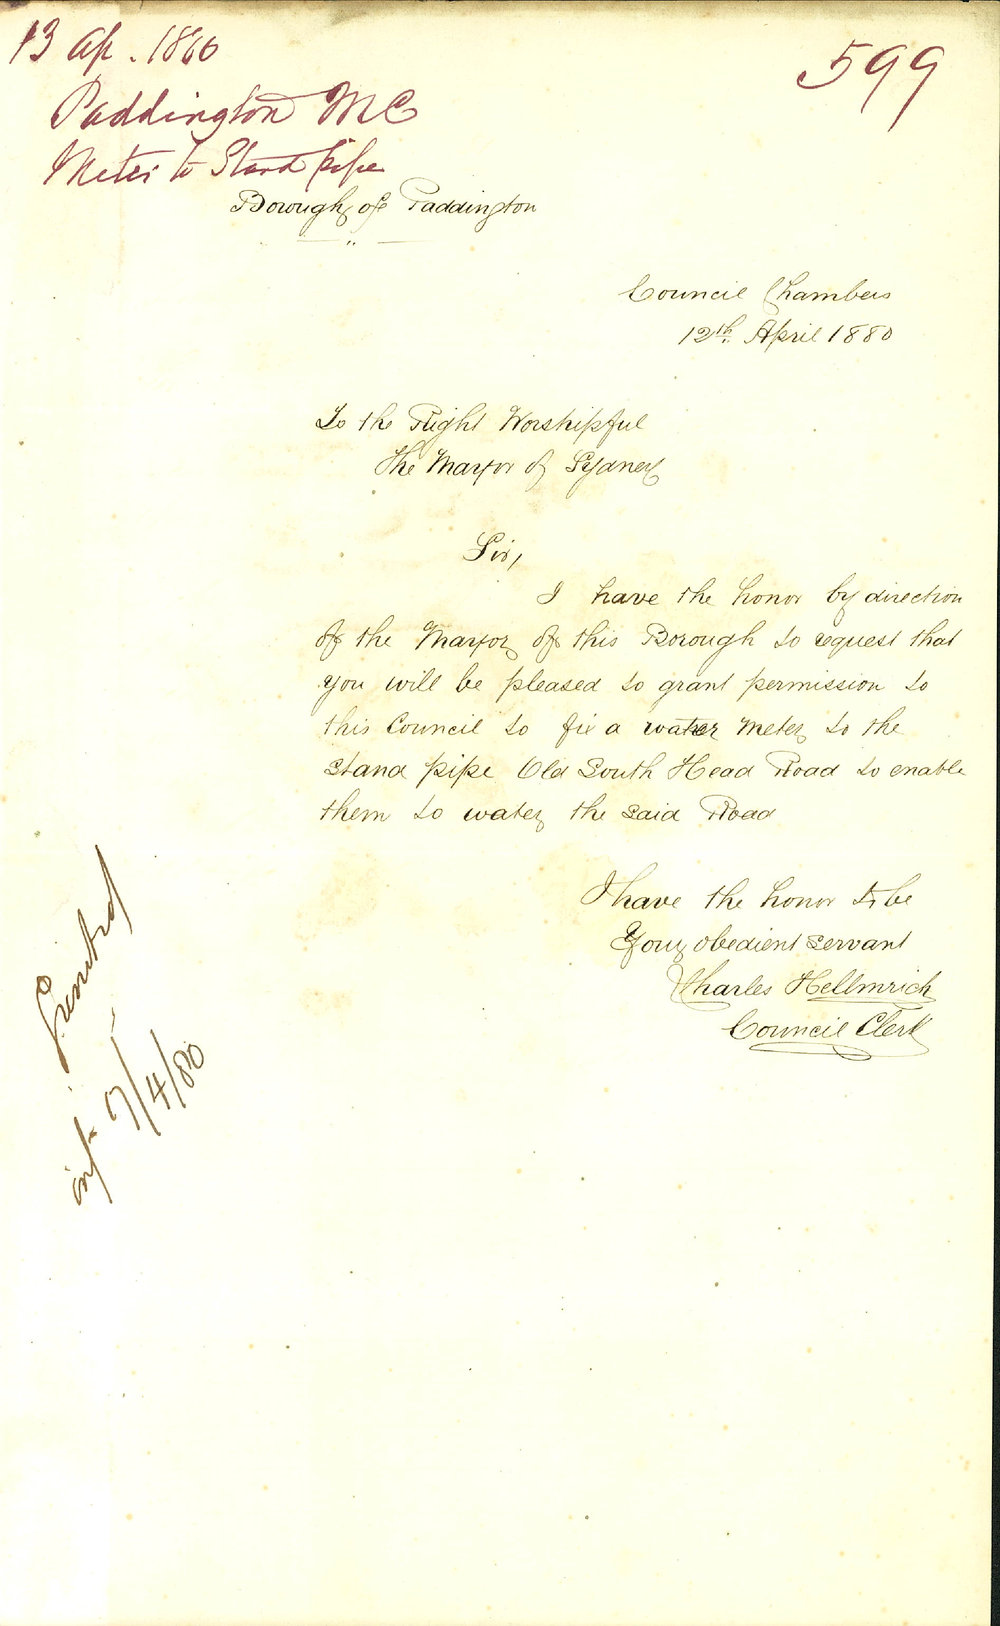 13 Ap. 1880
599
Paddington MC
Meter to Stand pipe
Borough of Paddington
Council Chambers
12th April 1880
To the Right Worshipful
The Mayor of Sydney
Sir,
I have the honor by direction
of the Mayor of this Borough to request that
you will be pleased to grant permission to
this Council to fix a water meter to the
stand pipe Old South Head Road to enable
them to water the said Road
I have the honor to be
Your obedient servant
Charles Hellmrich
Council Clerk
Granted
17/4/80